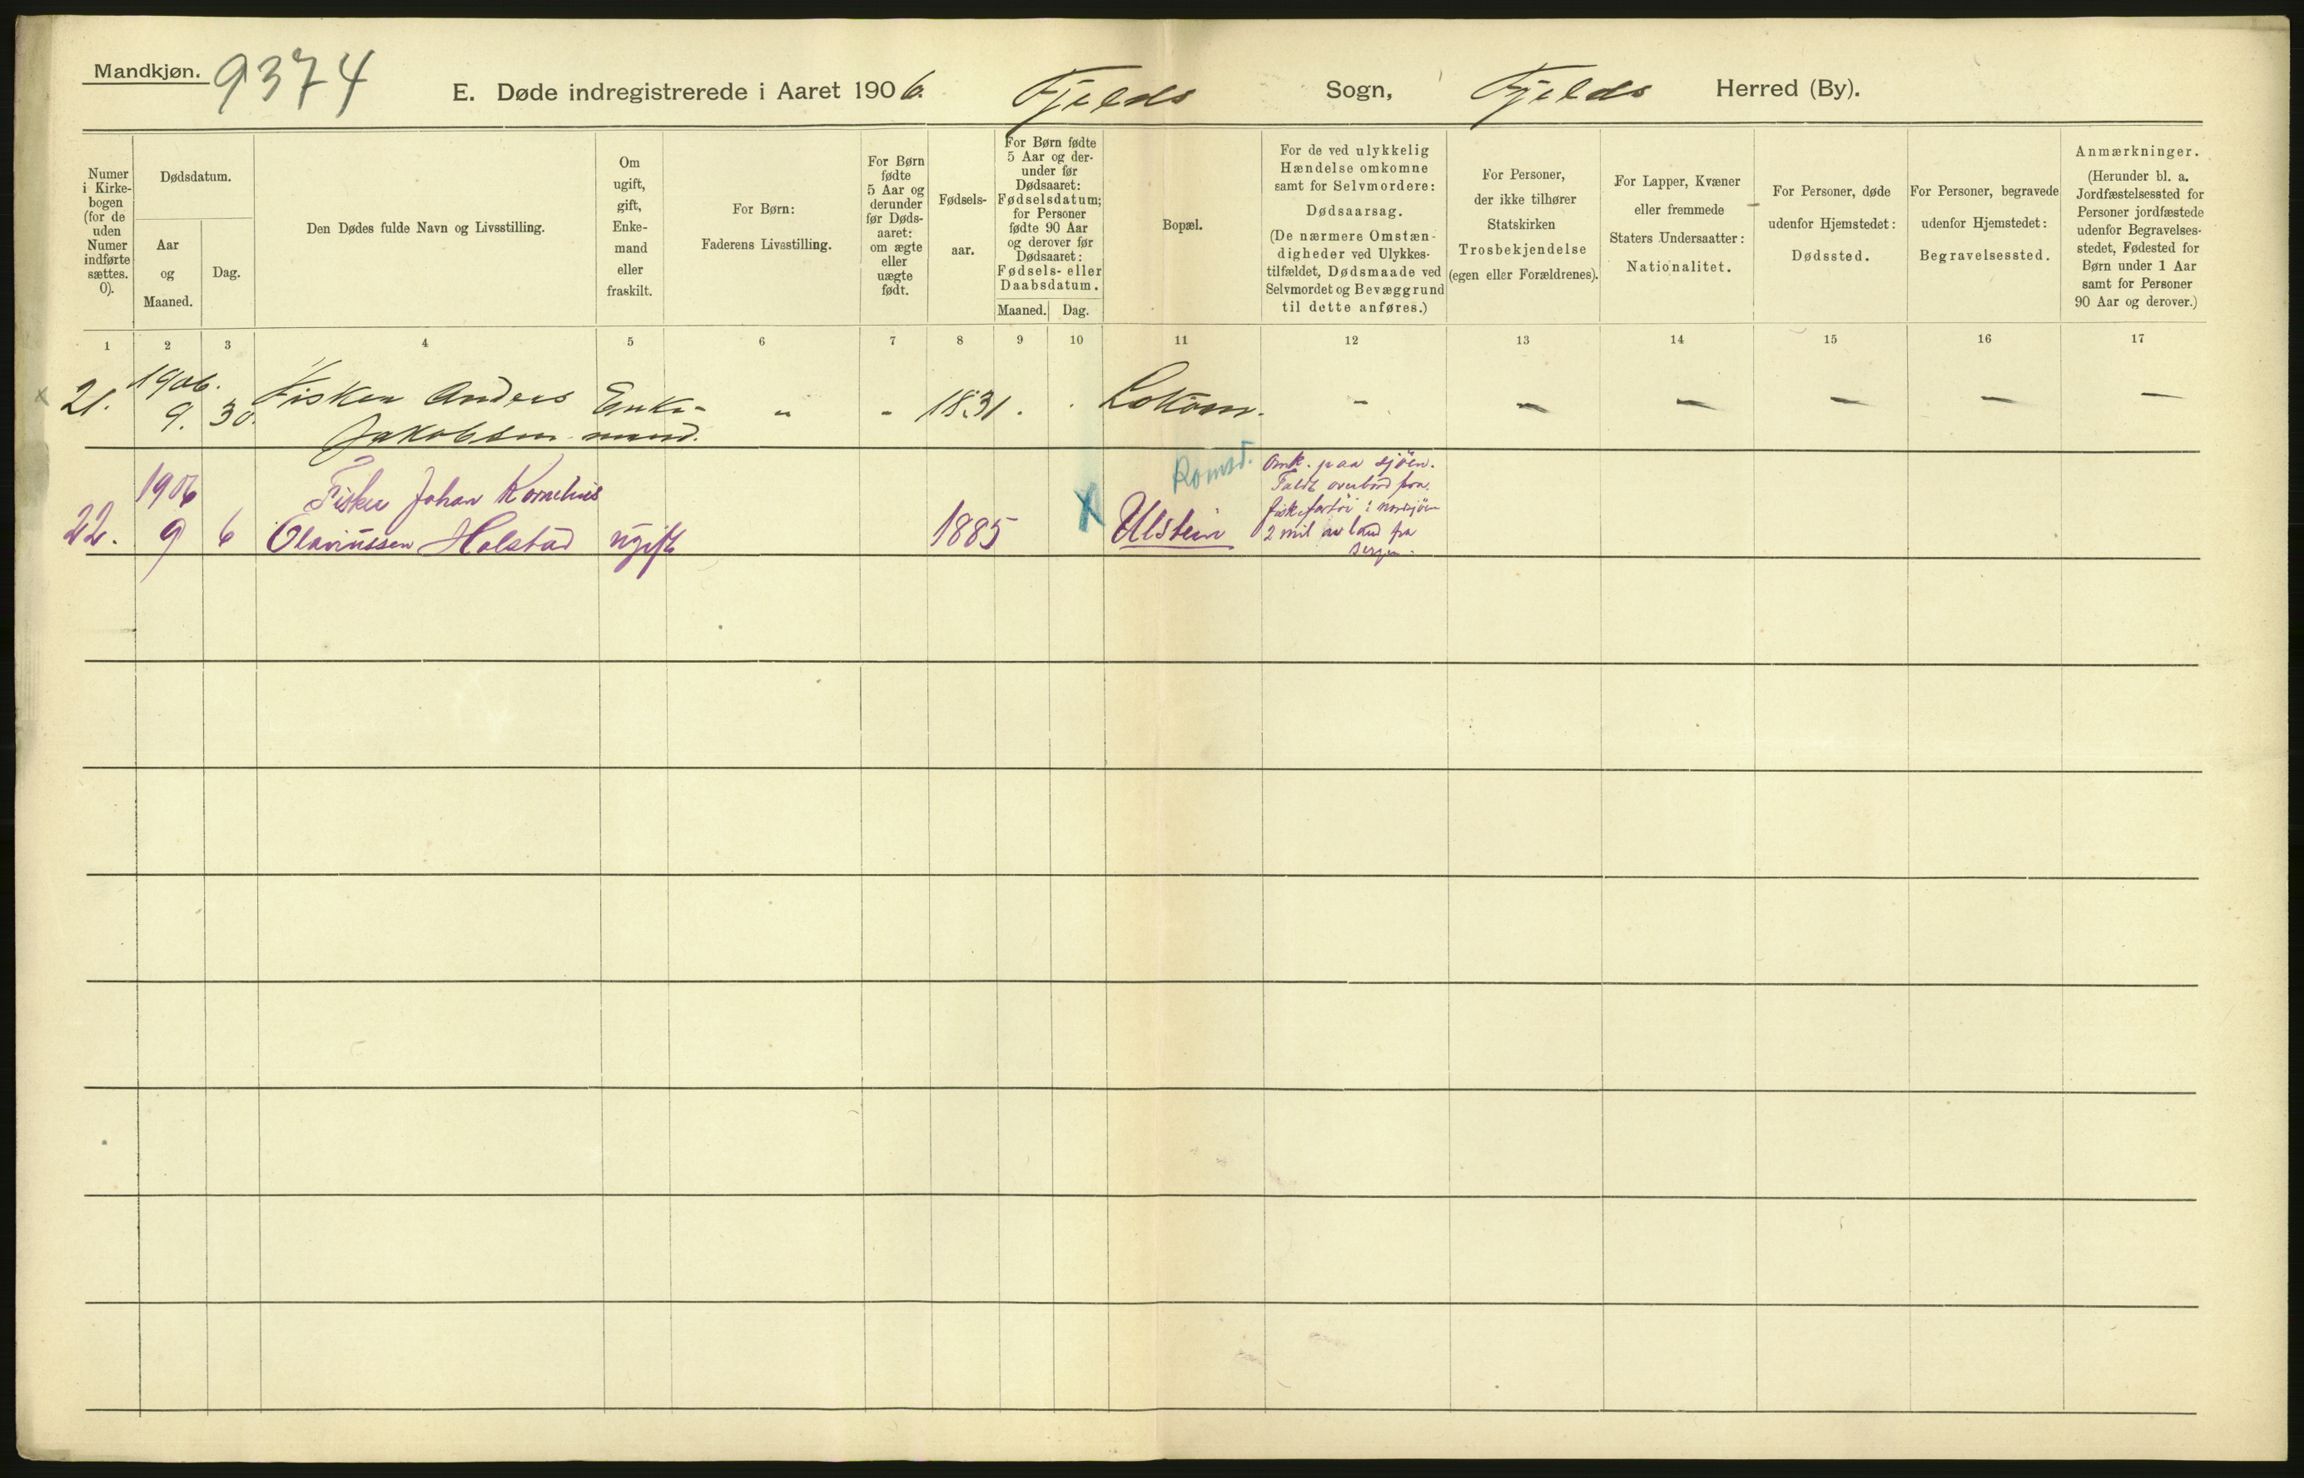 Mandkjøn.
9374
E. Døde indregistrerede i Aaret 1906. Fjelds Sogn, Fjelds Herred (By).
Numer
i Kirke-
bogen
(for de
uden
Numer
indførte
sættes.
0).
Dødsdatum.
Aar
og
Maaned.
Dag.
Den Dødes fulde Navn og Livsstilling.
Om
ugift,
gift,
Enke-
mand
eller
fraskilt.
For Børn:
Faderens Livsstilling.
For Børn
fødte
5 Aar og
derunder
før Døds-
aaret:
om ægte
eller
uægte
født.
Fødsels-
aar.
For Børn fødte
5 Aar og der-
under før
Dødsaaret:
Fødselsdatum;
for Personer
fødte 90 Aar
og derover før
Dødsaaret:
Fødsels- eller
Daabsdatum.
Maaned. Dag.
Bopæl.
For de ved ulykkelig
Hændelse omkomne
samt for Selvmordere:
Dødsaarsag.
(De nærmere Omstæn-
digheder ved Ulykkes-
tilfældet, Dødsmaade ved
Selvmordet og Bevæggrund
til dette anføres.)
For Personer,
der ikke tilhører
Statskirken
Trosbekjendelse
(egen eller Forældrenes).
For Lapper, Kvæner
eller fremmede
Staters Undersaatter:
Nationalitet.
For Personer, døde
udenfor Hjemstedet:
Dødssted.
For Personer, begravede
udenfor Hjemstedet:
Begravelsessted.
Anmærkninger.
(Herunder bl. a.
Jordfæstelsessted for
Personer jordfæstede
udenfor Begravelses-
stedet, Fødested for
Børn under 1 Aar
samt for Personer
90 Aar og derover.)
1 2 3 4 5 6 7 8 9 10 11 12 13 14 15 16 17
x 21. 1906. 9. 30. Fisker Anders Enke- " " 1831. . — — — — — —
Jakobsen mand.
22. 1906 9 6 Fisker Johan Kornelius
Olavinussen Holstad ugift 1885 X Ulstein
Romsd.
Omk. paa sjøen.
Faldt overbord fra
fiskefartøi i nordsjøen
2 mil av land fra
Bergen.